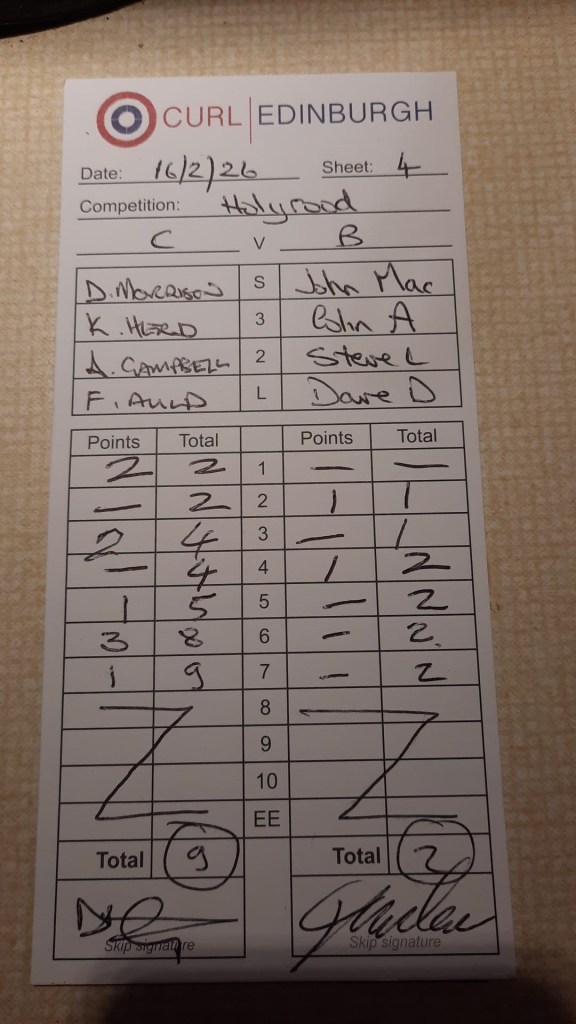 CURL EDINBURGH
Date: 16/2/26 Sheet: 4
Competition: Holyrood
C V B
D. MORRISON S John Mac
K. HERD 3 Colin A
A. CAMPBELL 2 Steve L
F. AULD L Dave D
Points Total Points Total
2 2 1 — —
— 2 2 1 1
2 4 3 — 1
— 4 4 1 2
1 5 5 — 2
3 8 6 - 2.
1 9 7 - 2
8
9
10
EE
Total 9 Total 2
Skip signature Skip signature